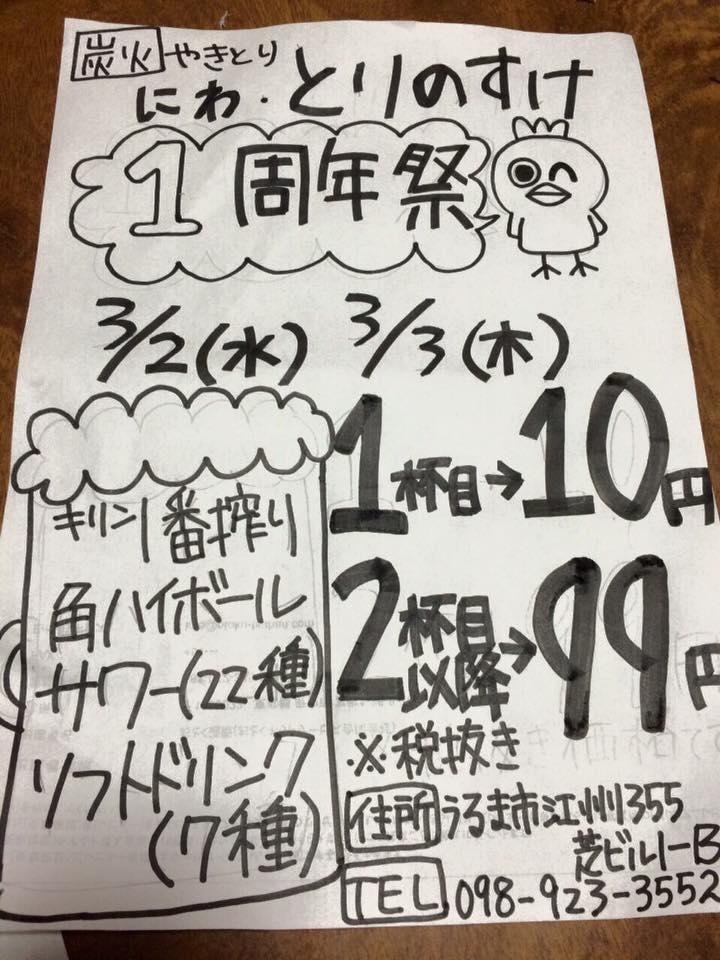 炭火 やきとり
にわ・とりのすけ
1周年祭
3/2(水) 3/3(木)
キリン一番搾り
角ハイボール
サワー(22種)
ソフトドリンク
(7種)
1杯目→10円
2杯目以降→99円
※税抜き
住所 うるま市江洲355
芝ビル1-B
TEL 098-923-3552